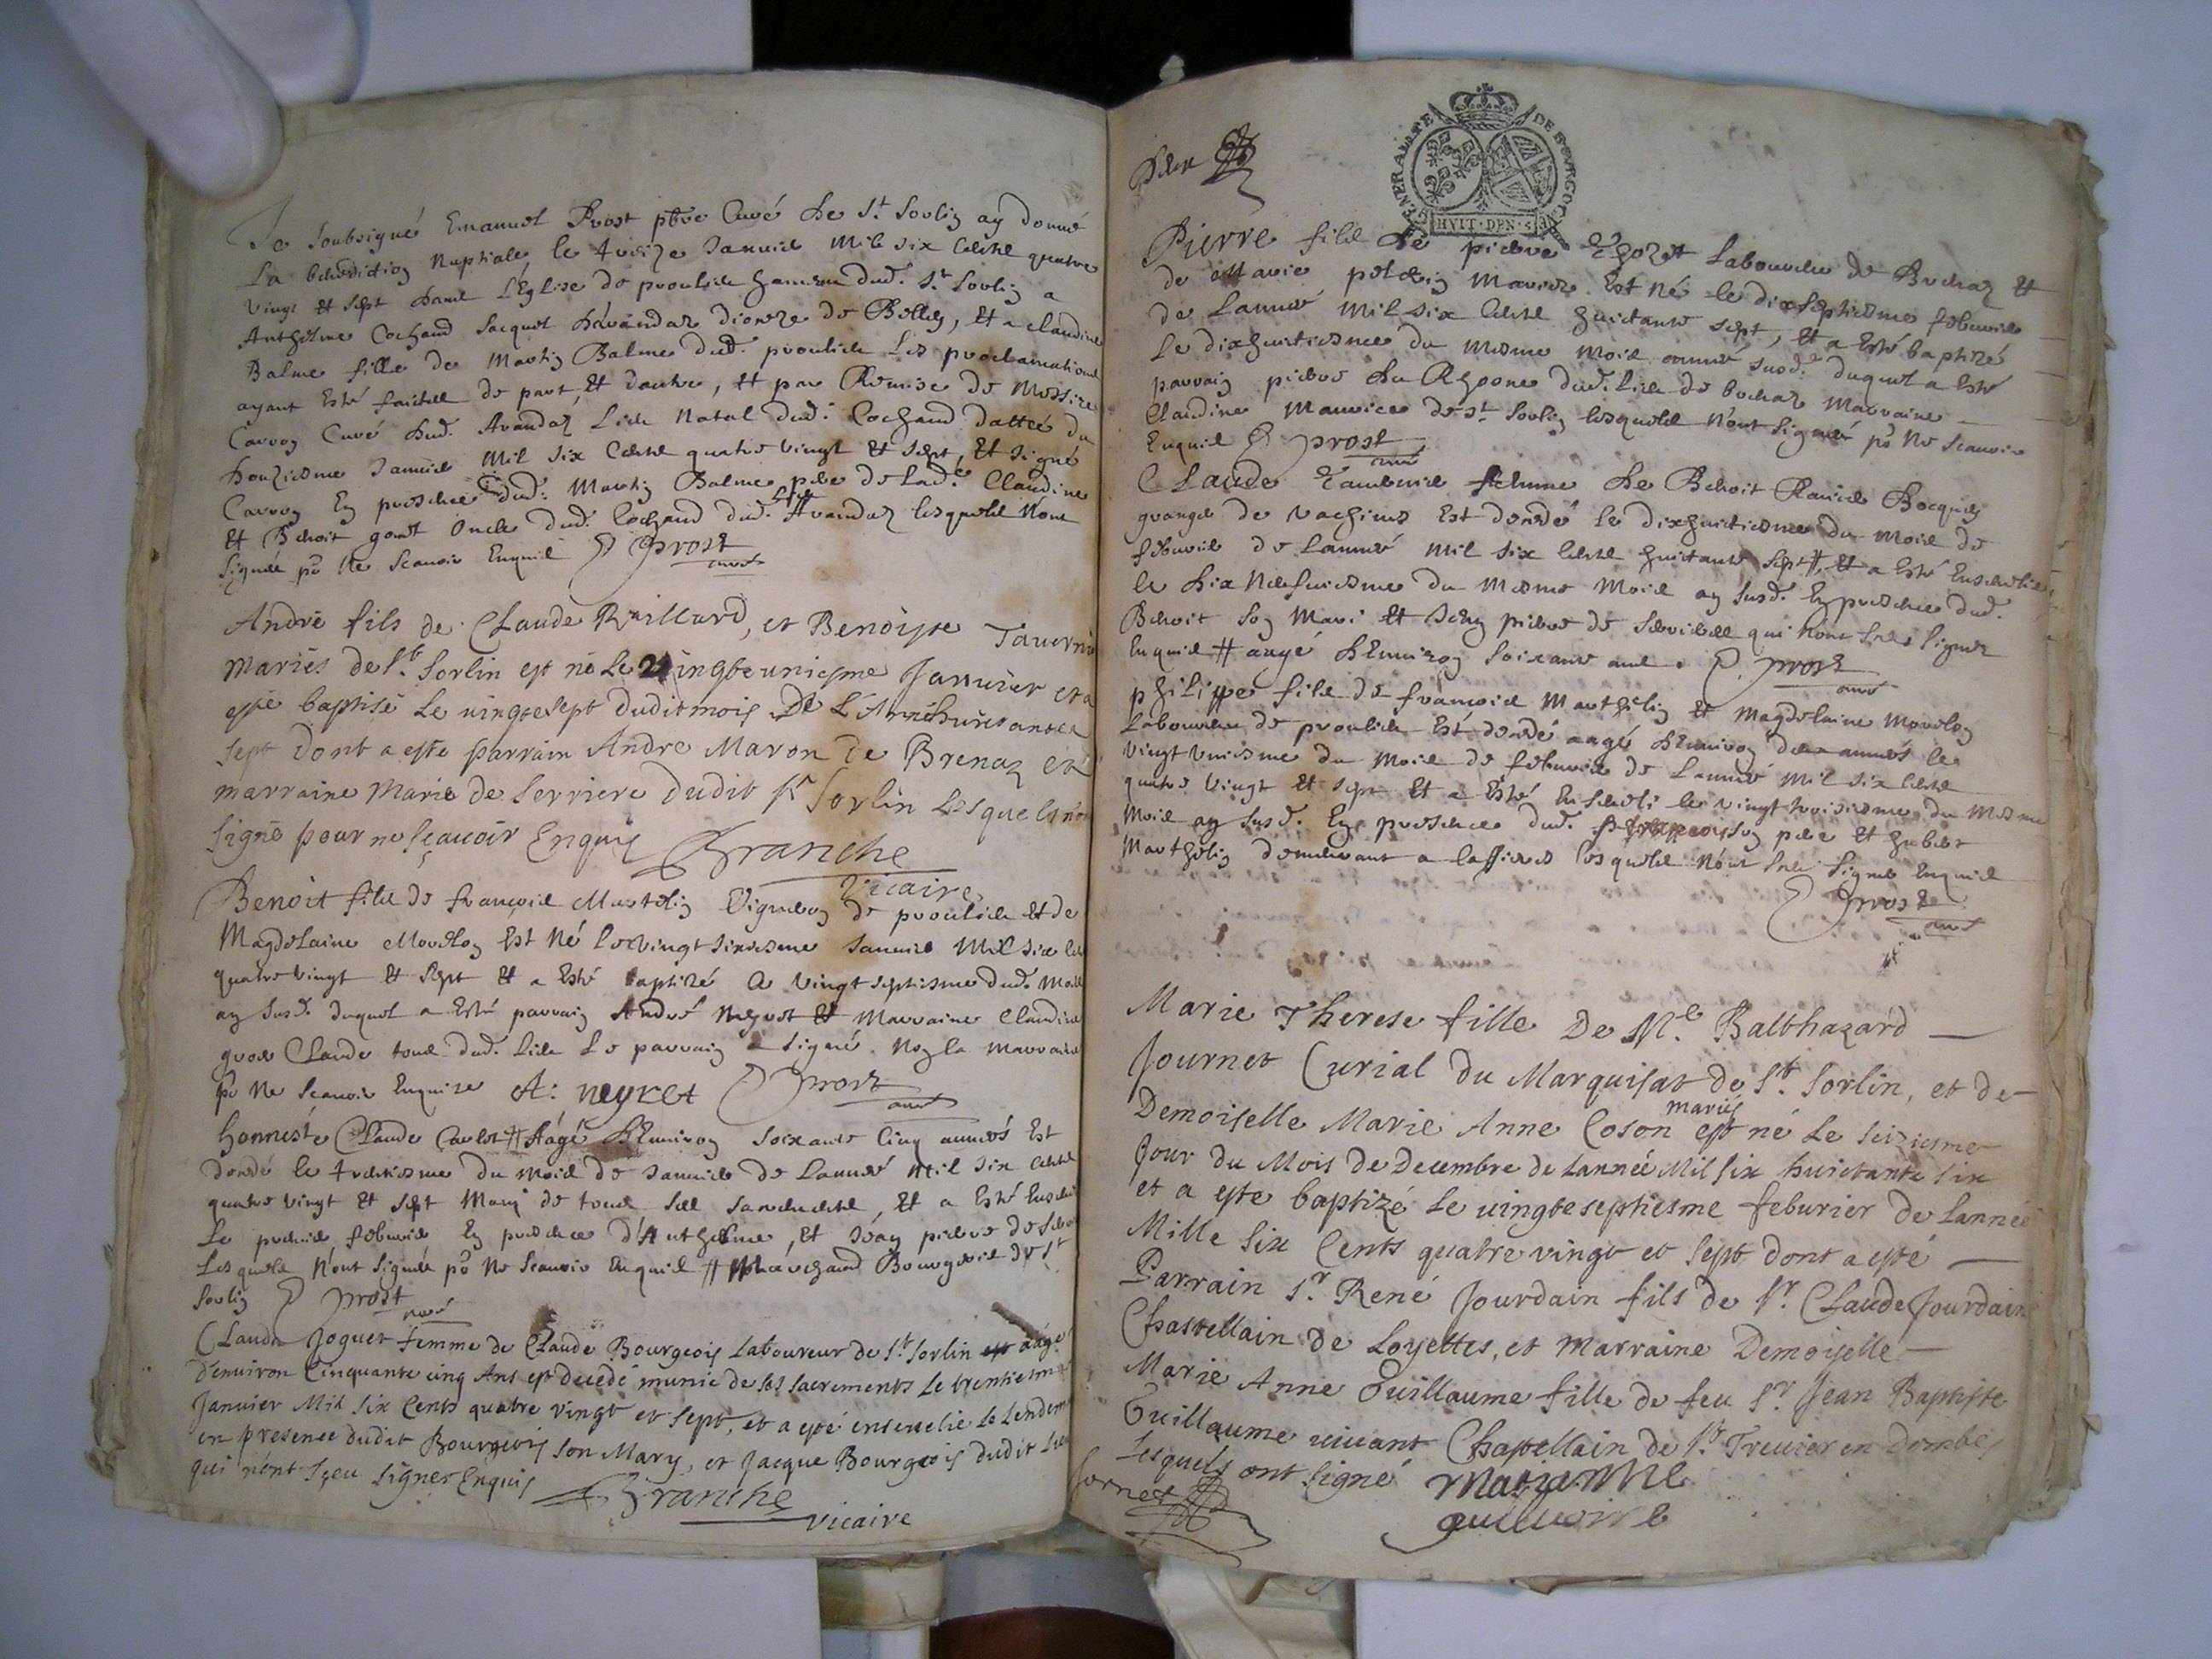 Je soubsigné Emanuel Prost pbre Curé de St Sorlin ay donné
La benediction Nuptiale le treize Januier mil six cents quatre
vingt et sept dans L'Eglise de proulieu hameau dud. St Sorlin a
Anthelme Cochand Jacquet d'auandaz diocese de Belley, et a claudine
Balme fille de Martin Balme dud. proulieu Les proclamations
ayant Esté faittes de part, et dautre, et par Remise de Messire
Carron Curé dud. Auandaz Lieu Natal dud. Cochand dattée du
douziesme Januier mil six cents quatre vingt et sept, et signé
Carron En presence dud. Martin Balme pere de Lad. Claudine
Et Benoit oncle dud. Cochand dud. Auandaz lesquels n'ont
signés po Ne Scauoir Enquis E Prost
curé
André fils de Claude Raillard, et Benoiste Tauernie
mariés de St. Sorlin est né Le 21 uingteuniesme Januier et a
esté baptisé Le uingtesept dudit mois De L'Année huictante
sept dont a este parrain Andre Maron de Brenaz et
marraine Marie de Serriere dudit St Sorlin Lesquels n'ont
signé pour ne sçauoir Enquis Franche
Vicaire
Benoit fils de françois Martelin Vigneron de proulieu et de
Magdelaine Morelon Est Né Le vingt sixiesme Januier Mil six cents
quatre vingt et sept et a Esté baptizé Le vingt septiesme dud. mois
an susd. duquel a Esté parrain André neyret et Marraine Claudine
Claude tous dud. Lieu Le parrain a signé. Non la marraine
po Ne Scauoir Enquise A: neyret E Prost
curé
honneste Claude Carlet # Aagé d'Enuiron soixante Cinq années Est
decedé le trentiesme du mois de Januier de Lannée Mil six cents
quatre vingt et sept Muny de tous ses sacrements, et a Esté Enseueli
Le premier feburier En presence d'Anthelme, Et Jean pierre de
Lesquels n'ont signés po Ne Scauoir Enquis # Marchand Bourgeois de St
Sorlin E Prost
curé
Clauda Joguet femme de Claude Bourgeois Laboureur de St. Sorlin est aagé
d'enuiron Cinquante cinq Ans est decedé munie de ses sacrements Le trentiesme
Januier Mil Six Cents quatre vingt et Sept, et a esté enseuelie Le Lendemain
en presence dudit Bourgeois Son Mary, et Jacque Bourgeois dudit Lieu
qui n'ont Sçeu Signer Enquis Franche
vicaire
GENERALITE DE BOURGOGNE
HVIT·DEN·
Pierre fils de pierre Thozet Laboureur de Bochaz et
de Marie peletin Maries. Est né le dixseptiesme feburier
de Lannée mil six cents huictante sept, et a Esté baptizé
Le dixhuictiesme du mesme mois année susd. duquel a Esté
parrain pierre du Rhoone dud. Lieu de bochaz Marraine
Claudine Maurice de St Sorlin lesquels n'ont signés po Ne Scauoir
Enquis E Prost
curé
Claude femme de Benoit
grange de vachieus Est decedé le dixhuictiesme du mois de
feburier de Lannée mil six cents huictante sept #, et a Esté Enseuelie
le dix Neufuiesme du mesme mois an susd. En presence dud.
Benoit son Mari et Jean pierre de qui n'ont sceu signer
Enquis # aagé d'Enuiron soixante ans. E. Prost
curé
philippe fils de françois Marthelin et Magdelaine Morelon
Laboureur de proulieu Est decedé aagé d'Enuiron deux années le
vingt uniesme du mois de feburier de Lannée mil six cents
quatre vingt et sept et a Esté Enseueli le vingt troisiesme du mesme
mois an susd. En presence dud. françois son pere et hubert
Marthelin demeurant a lesquels n'ont sceu signer Enquis
E Prost
curé
Marie Therese fille De Me. Balthazard
Journet Curial du Marquisat de St. Sorlin, et de
Demoiselle Marie Anne Coson mariés est né Le seiziesme
Jour du Mois de Decembre de Lannée Mil six huictante six
et a este baptizé Le uingteseptiesme feburier de Lannee
Mille Six Cents quatre vingt et Sept dont a esté
Parrain Sr. René Jourdain fils de Sr. Claude Jourdain
Chastellain de Loyettes, et Marraine Demoiselle
Marie Anne Guillaume fille de feu Sr Jean Baptiste
Guillaume viuant Chastellain de St. Treuier en Dombes
Lesquels ont signé Marianne
guillaume
Jornet